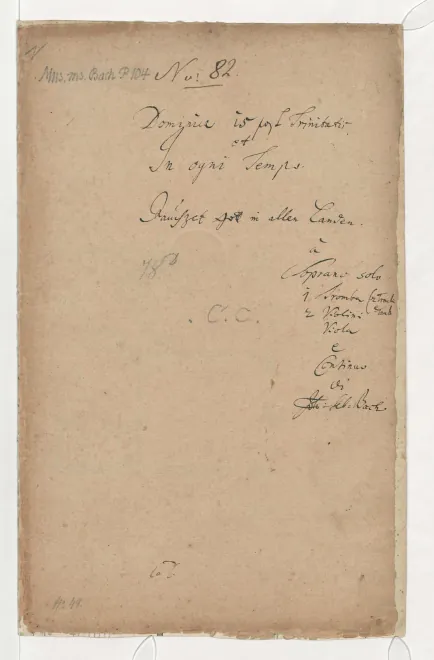 Mus. ms. Bach P 104
No: 82.
Dominica 15 post Trinitatis.
et
In ogni Tempo.
Jauchzet Gott in allen Landen.
à
Soprano solo
1 Tromba
2 Violini
Viola
e
Continuo
di
Joh: Seb: Bach
C. C.